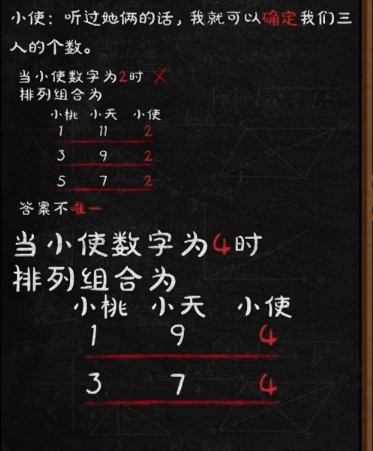 小使：听过她俩的话，我就可以确定我们三
人的个数。
当小使数字为2时 ×
排列组合为
小桃 小天 小使
1 11 2
3 9 2
5 7 2
答案不唯一
当小使数字为4时
排列组合为
小桃 小天 小使
1 9 4
3 7 4